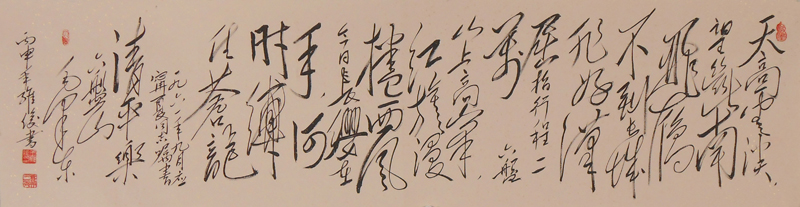 天高雲淡，
望斷南
飛雁
不到長城
非好漢
屈指行程二
萬 六盤
山上高峯，
紅旗漫
捲西風
今日長纓在
手，何
時縛
住蒼龍
一九六一年九月應
寧夏同志囑書
清平樂
六盤山
毛澤東
丙申年 書